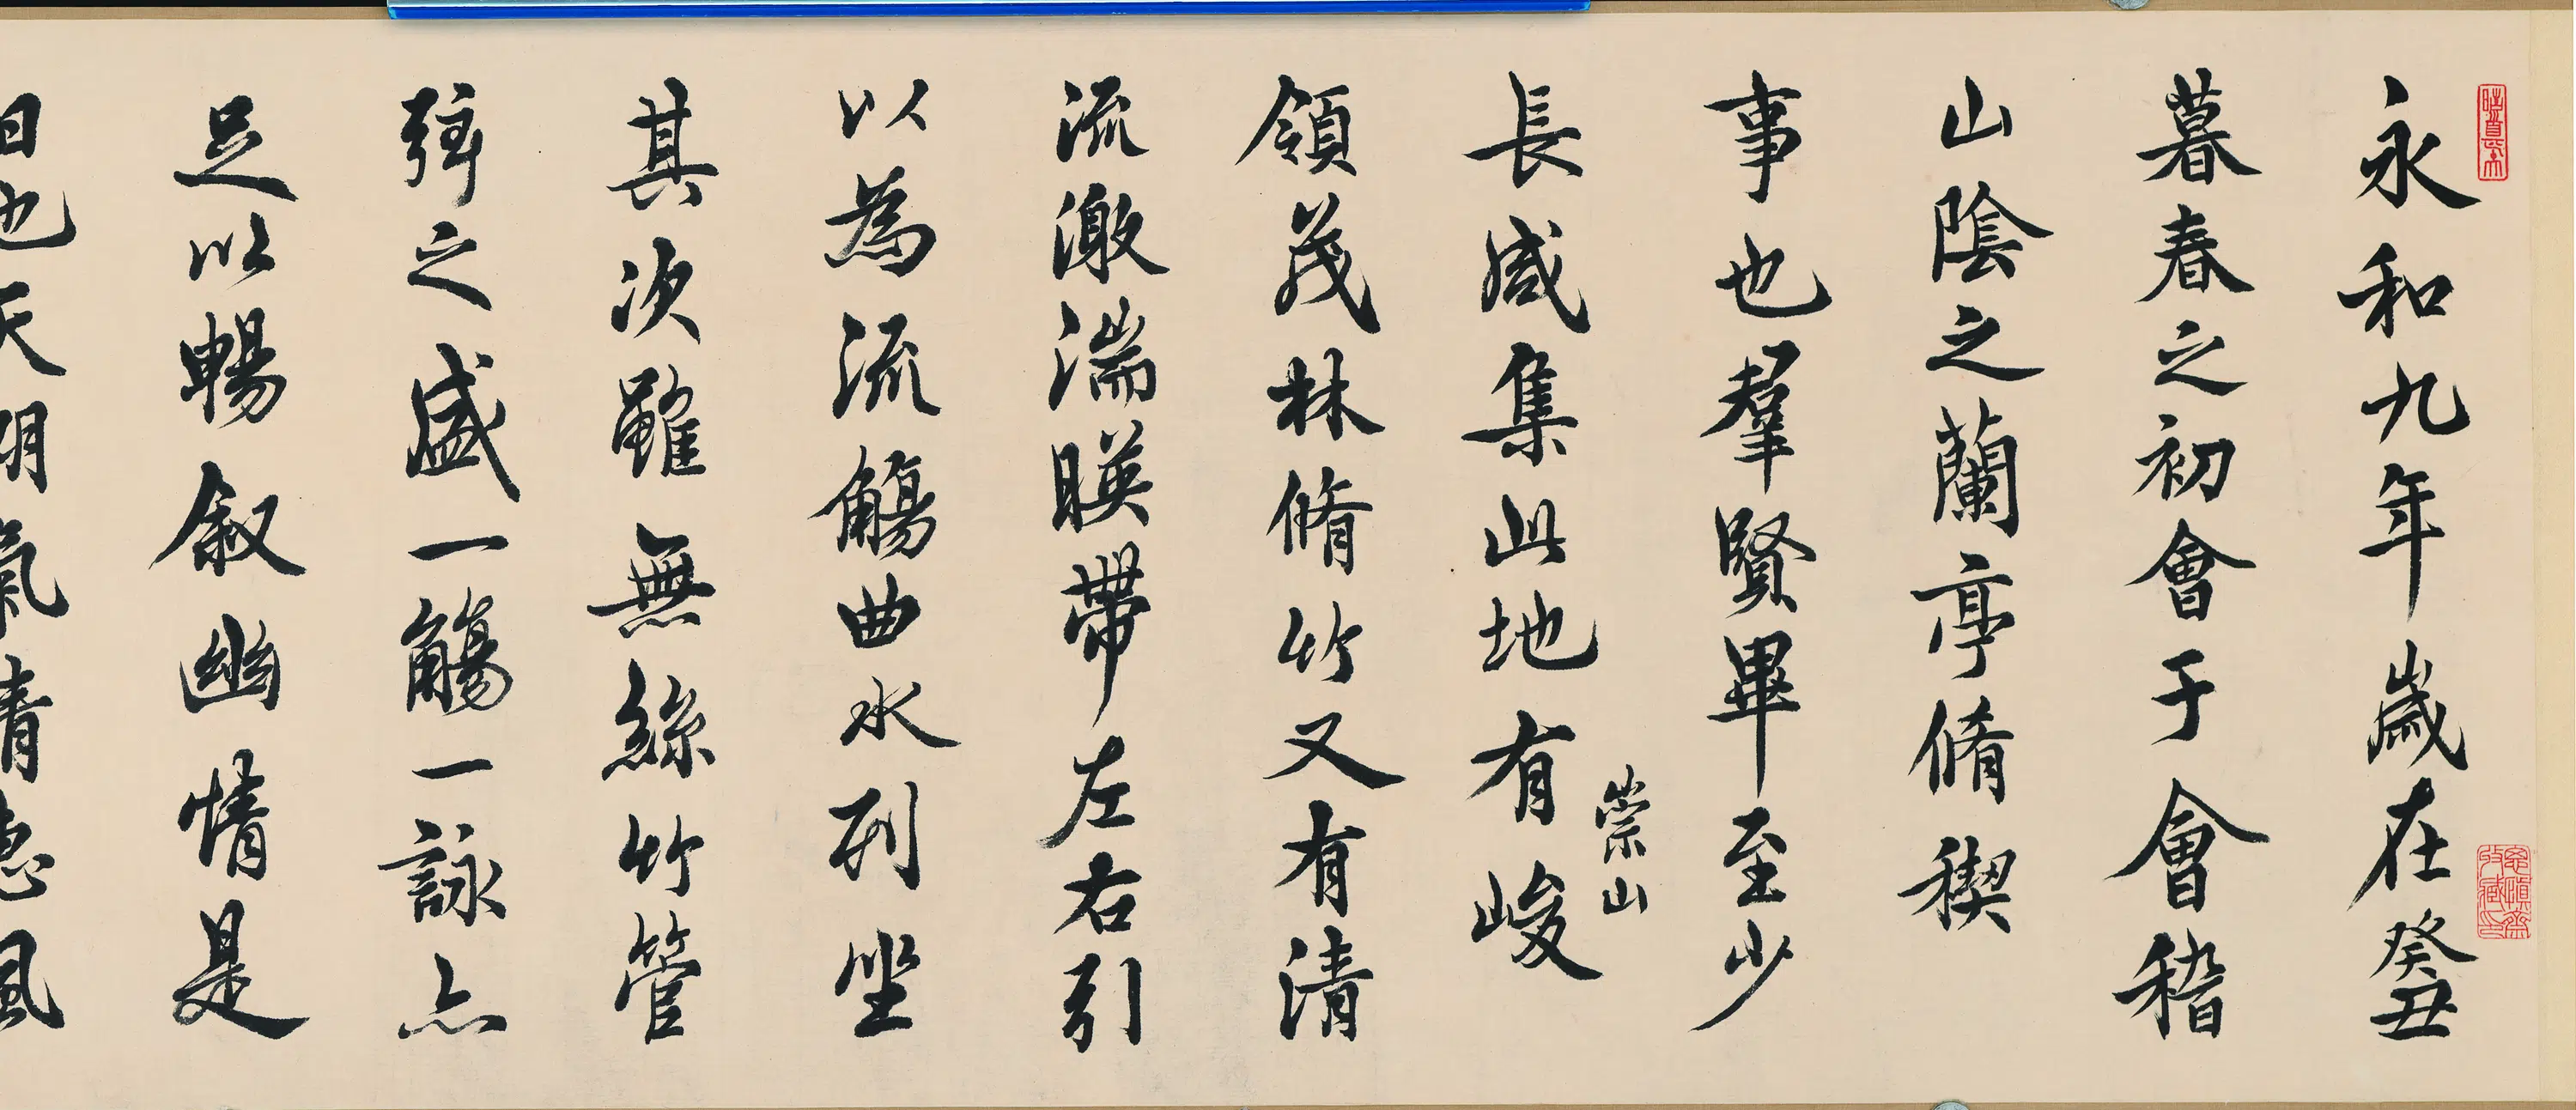 永和九年歲在癸丑
暮春之初會于會稽
山陰之蘭亭脩稧
事也羣賢畢至少
長咸集此地有
崇山
峻
領茂林脩竹又有清
流激湍暎帶左右引
以為流觴曲水列坐
其次雖無絲竹管
弦之盛一觴一詠亦
足以暢叙幽情是
日也天朗氣清惠風